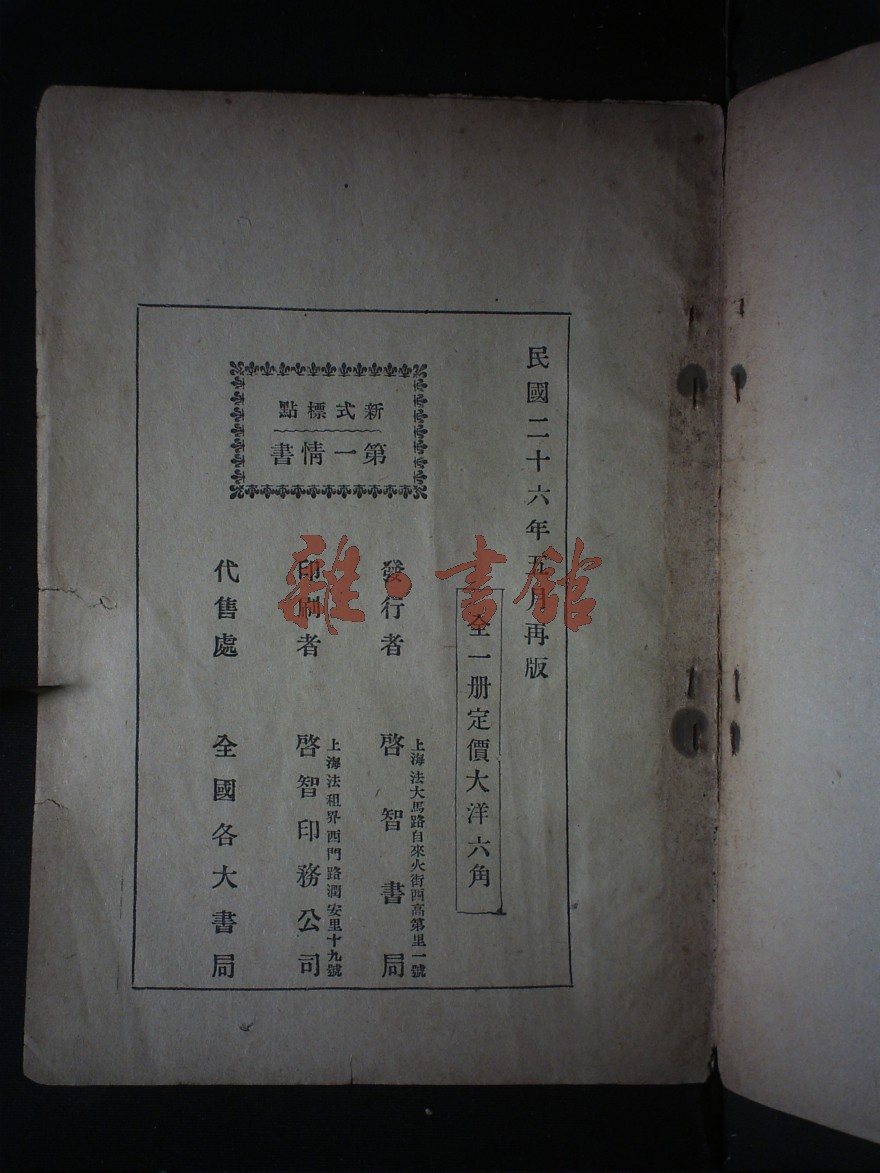 民國二十六年五月再版
全一册定價大洋六角
新式標點
第一情書
發行者
上海法大馬路自來火街西高第里一號
啓智書局
印刷者
上海法租界西門路潤安里十九號
啓智印務公司
代售處
全國各大書局
雜·書館